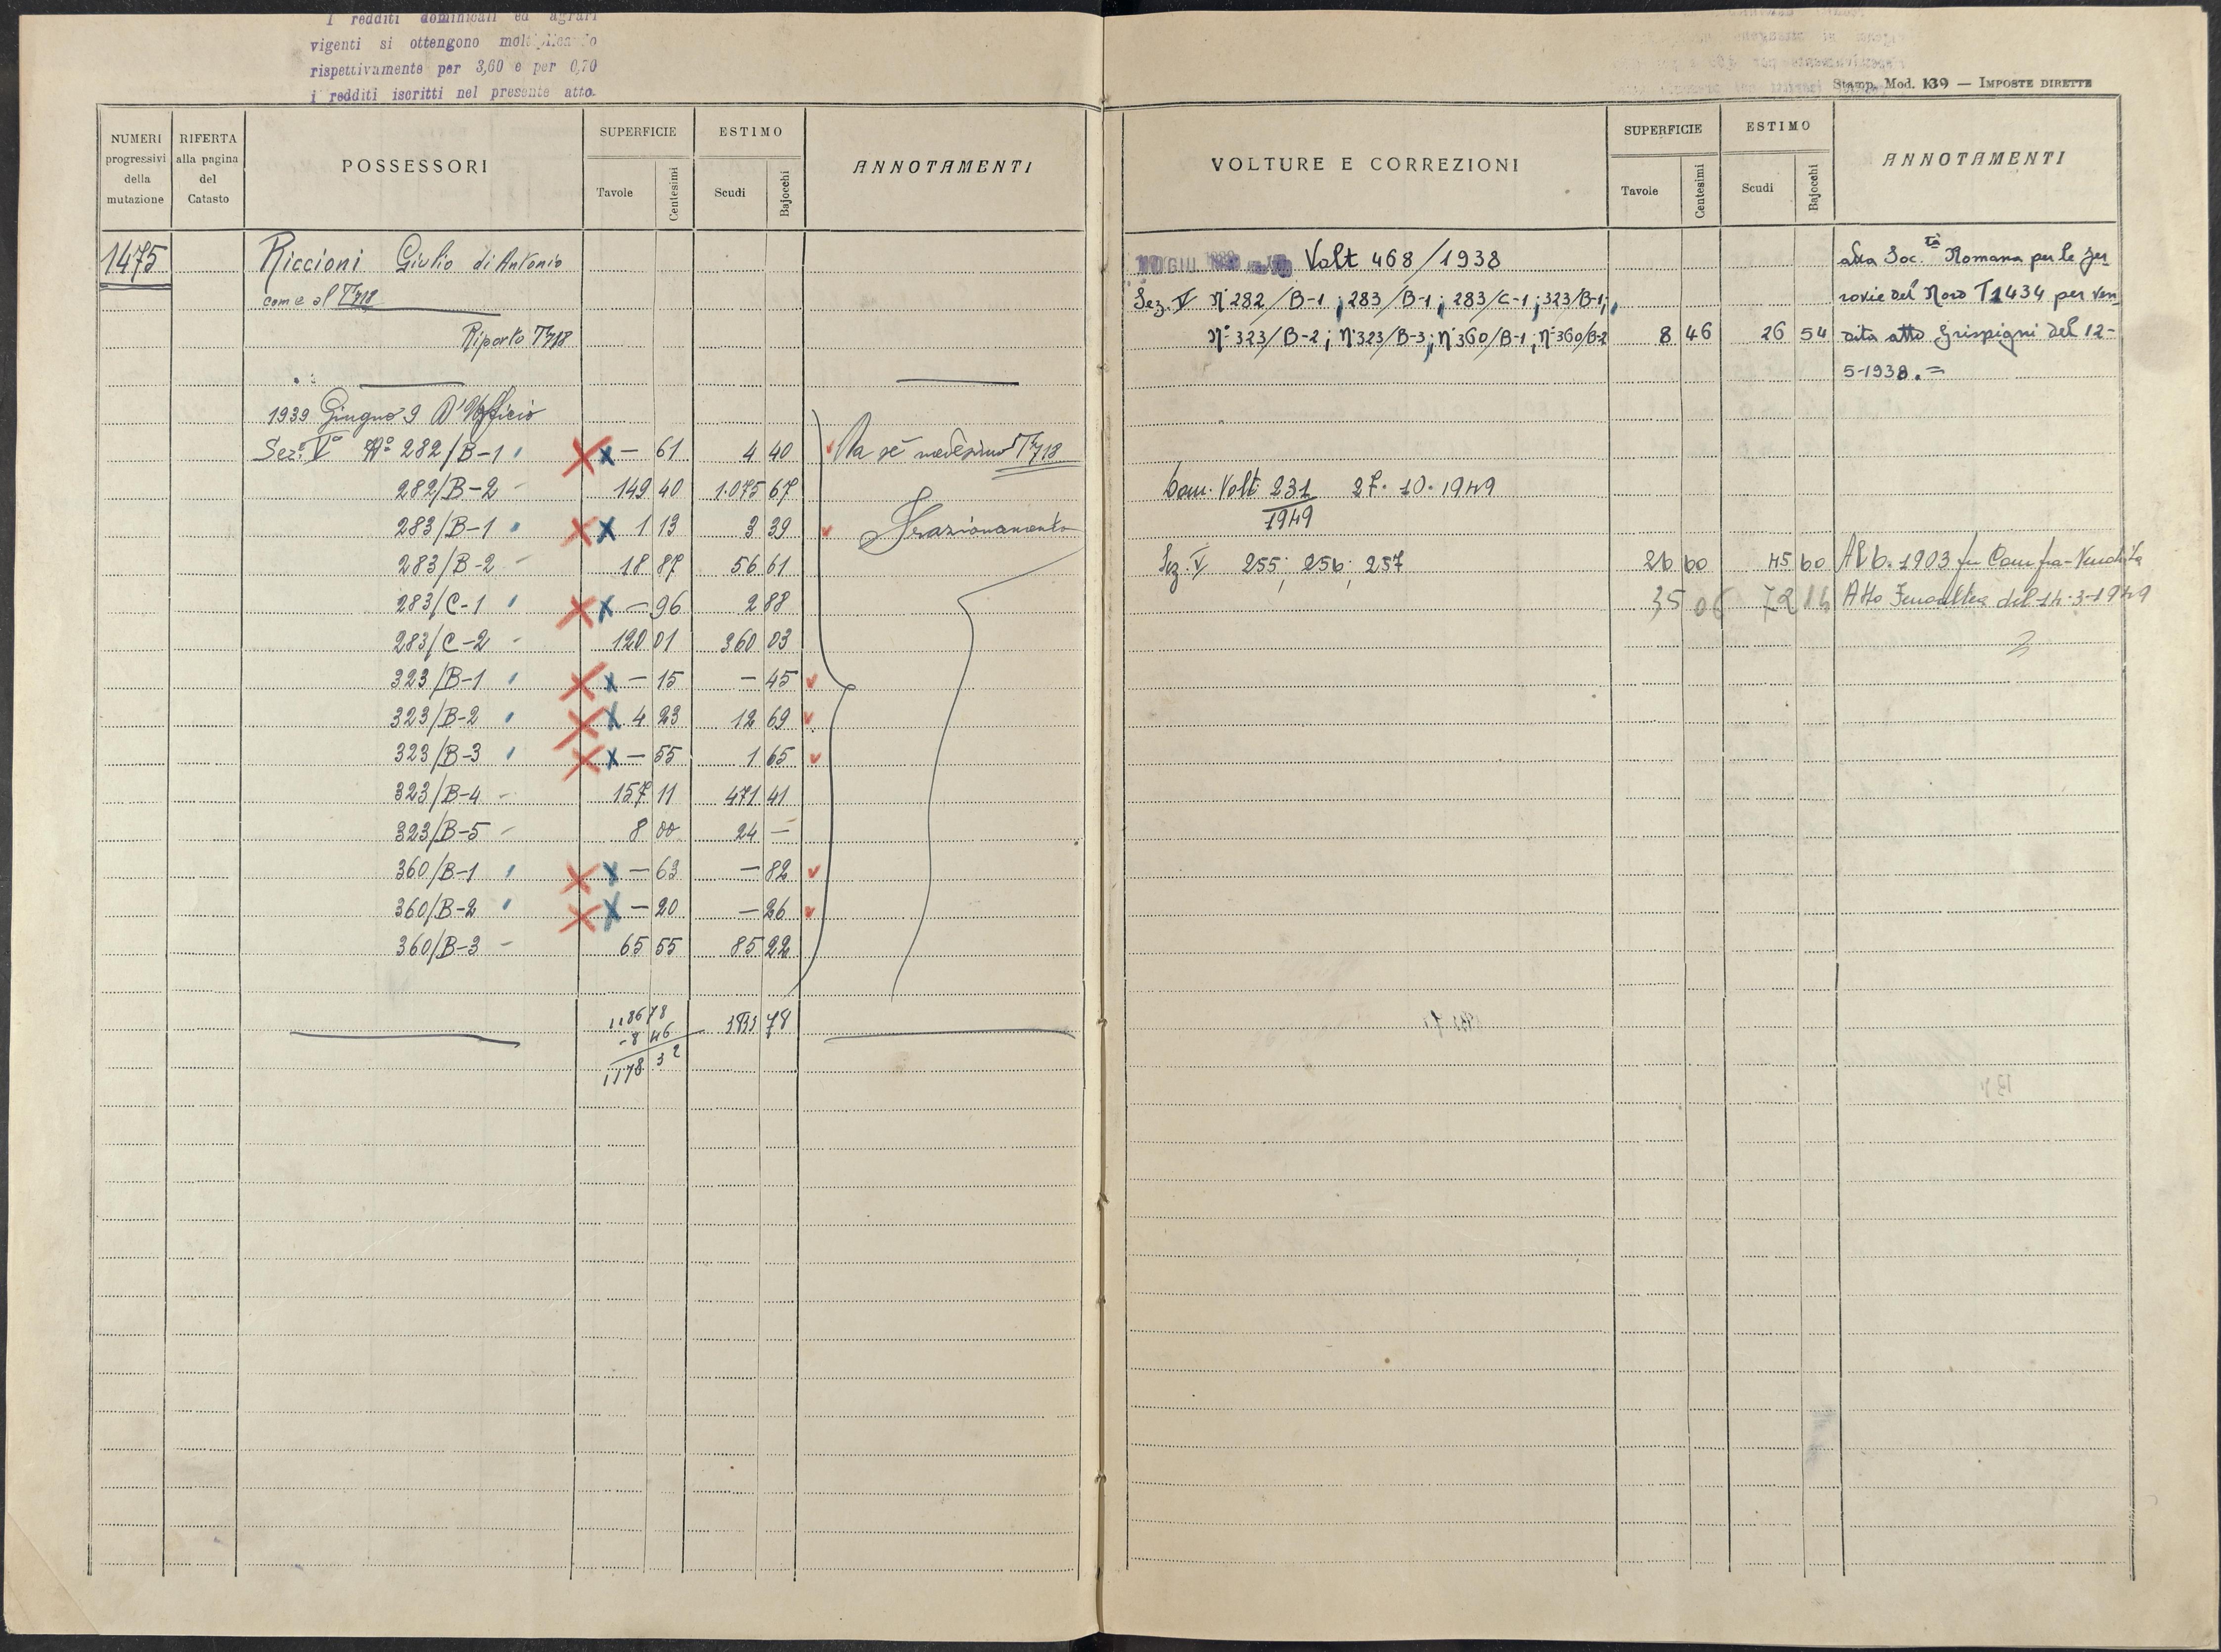 I redditi dominicali ed agrari
vigenti si ottengono moltiplicando
rispettivamente per 3,60 e per 0,70
i redditi iscritti nel presente atto.
NUMERI progressivi della mutazione
RIFERTA alla pagina del Catasto
POSSESSORI
SUPERFICIE
Tavole Centesimi
ESTIMO
Scudi Bajocchi
ANNOTAMENTI
1475 Riccioni Giulio di Antonio
come al T 718
Riporto T 718
1939 Giugno 9 D'Ufficio
Sez. V Nº 282/B-1 — 61 4 40 Da sè medesimo T 718
282/B-2 - 149 40 1.075 67
283/B-1 1 13 3 39 Frazionamento
283/B-2 - 18 87 56 61
283/C-1 — 96 2 88
283/C-2 - 120 01 360 03
323/B-1 — 15 — 45
323/B-2 4 23 12 69
323/B-3 — 55 1 65
323/B-4 - 157 11 471 41
323/B-5 - 8 00 24 —
360/B-1 — 63 — 82
360/B-2 — 20 — 26
360/B-3 - 65 55 85 22
1186 78
-8 46
1178 32
78
Stamp. Mod. 139 — IMPOSTE DIRETTE
VOLTURE E CORREZIONI
SUPERFICIE
Tavole Centesimi
ESTIMO
Scudi Bajocchi
ANNOTAMENTI
GIU Volt 468/1938 alla Soc.tà Romana per le fer-
Sez. V N 282/B-1; 283/B-1; 283/C-1; 323/B-1; rovie del Nord T 1434 per ven-
Nº 323/B-2; Nº 323/B-3; Nº 360/B-1; Nº 360/B-2 8 46 26 54 dita atto Grispigni del 12-
5-1938.=
Com. Volt. 231/1949 27.10.1949
Sez. V 255; 256; 257 26 60 45 60 Al 6. 1903 per Compra-Vendita
35 06 72 14 Atto del 14-3-1949